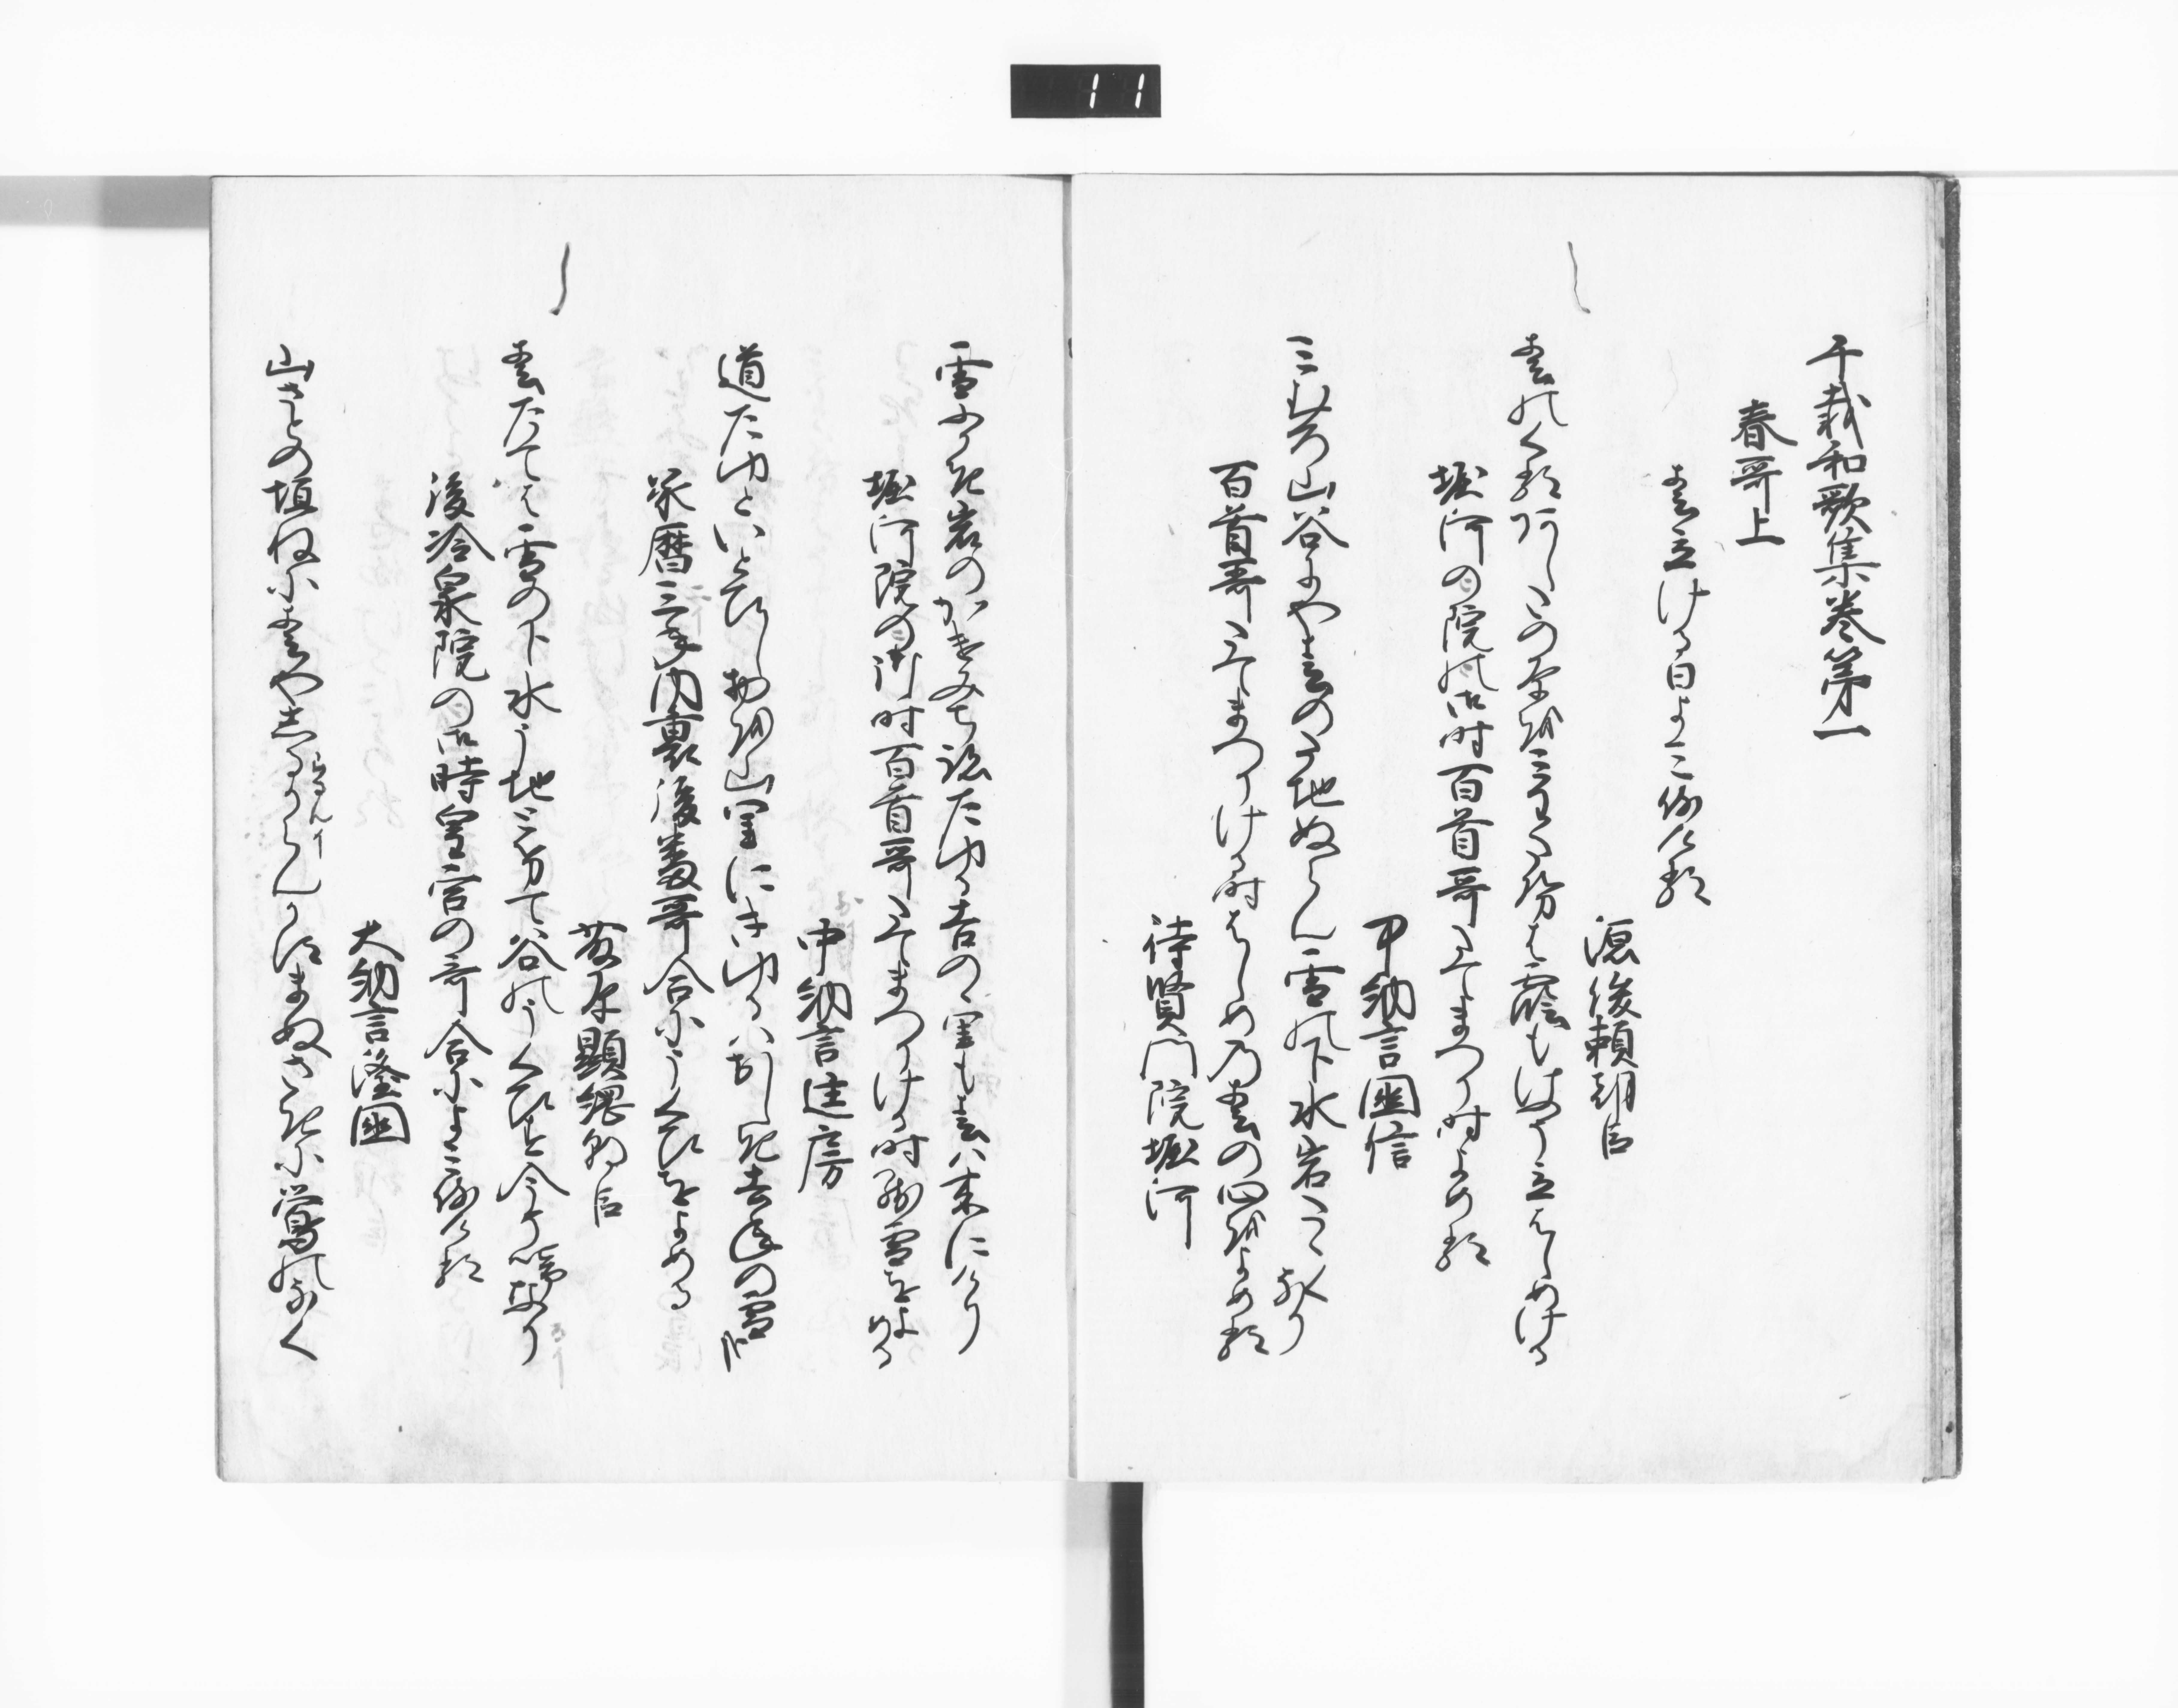 11
千載和歌集巻第一
春哥上
春立ける日よみ侍ける
源俊頼朝臣
春のくるあしたの原を三わたせは霞もけふそ立はしめける
堀河の院の御時百首哥たてまつりける時よめる
中納言国信
三むろ山谷にや春のたちぬらん雪の下水岩たたくなり
百首哥たてまつりける時はしめ乃春の心をよめる
待賢門院堀河
雪ふかき岩のかけみち跡たゆる吉のゝ里も春ハ来にけり
堀河院の御時百首哥たてまつりける時残雪をよめる
中納言匡房
道たゆといとひし物を山里にきゆるハおしき去年の雪哉
承暦二年内裏後番哥合にうくひすをよめる
藤原顕綱朝臣
春たては雪の下水うちとけて谷のうくひす今そ啼なり
後冷泉院の御時皇后宮の哥合によみ侍ける
大納言隆国
山さとの垣ねに春やしるからんかすまぬさきに鶯のなく